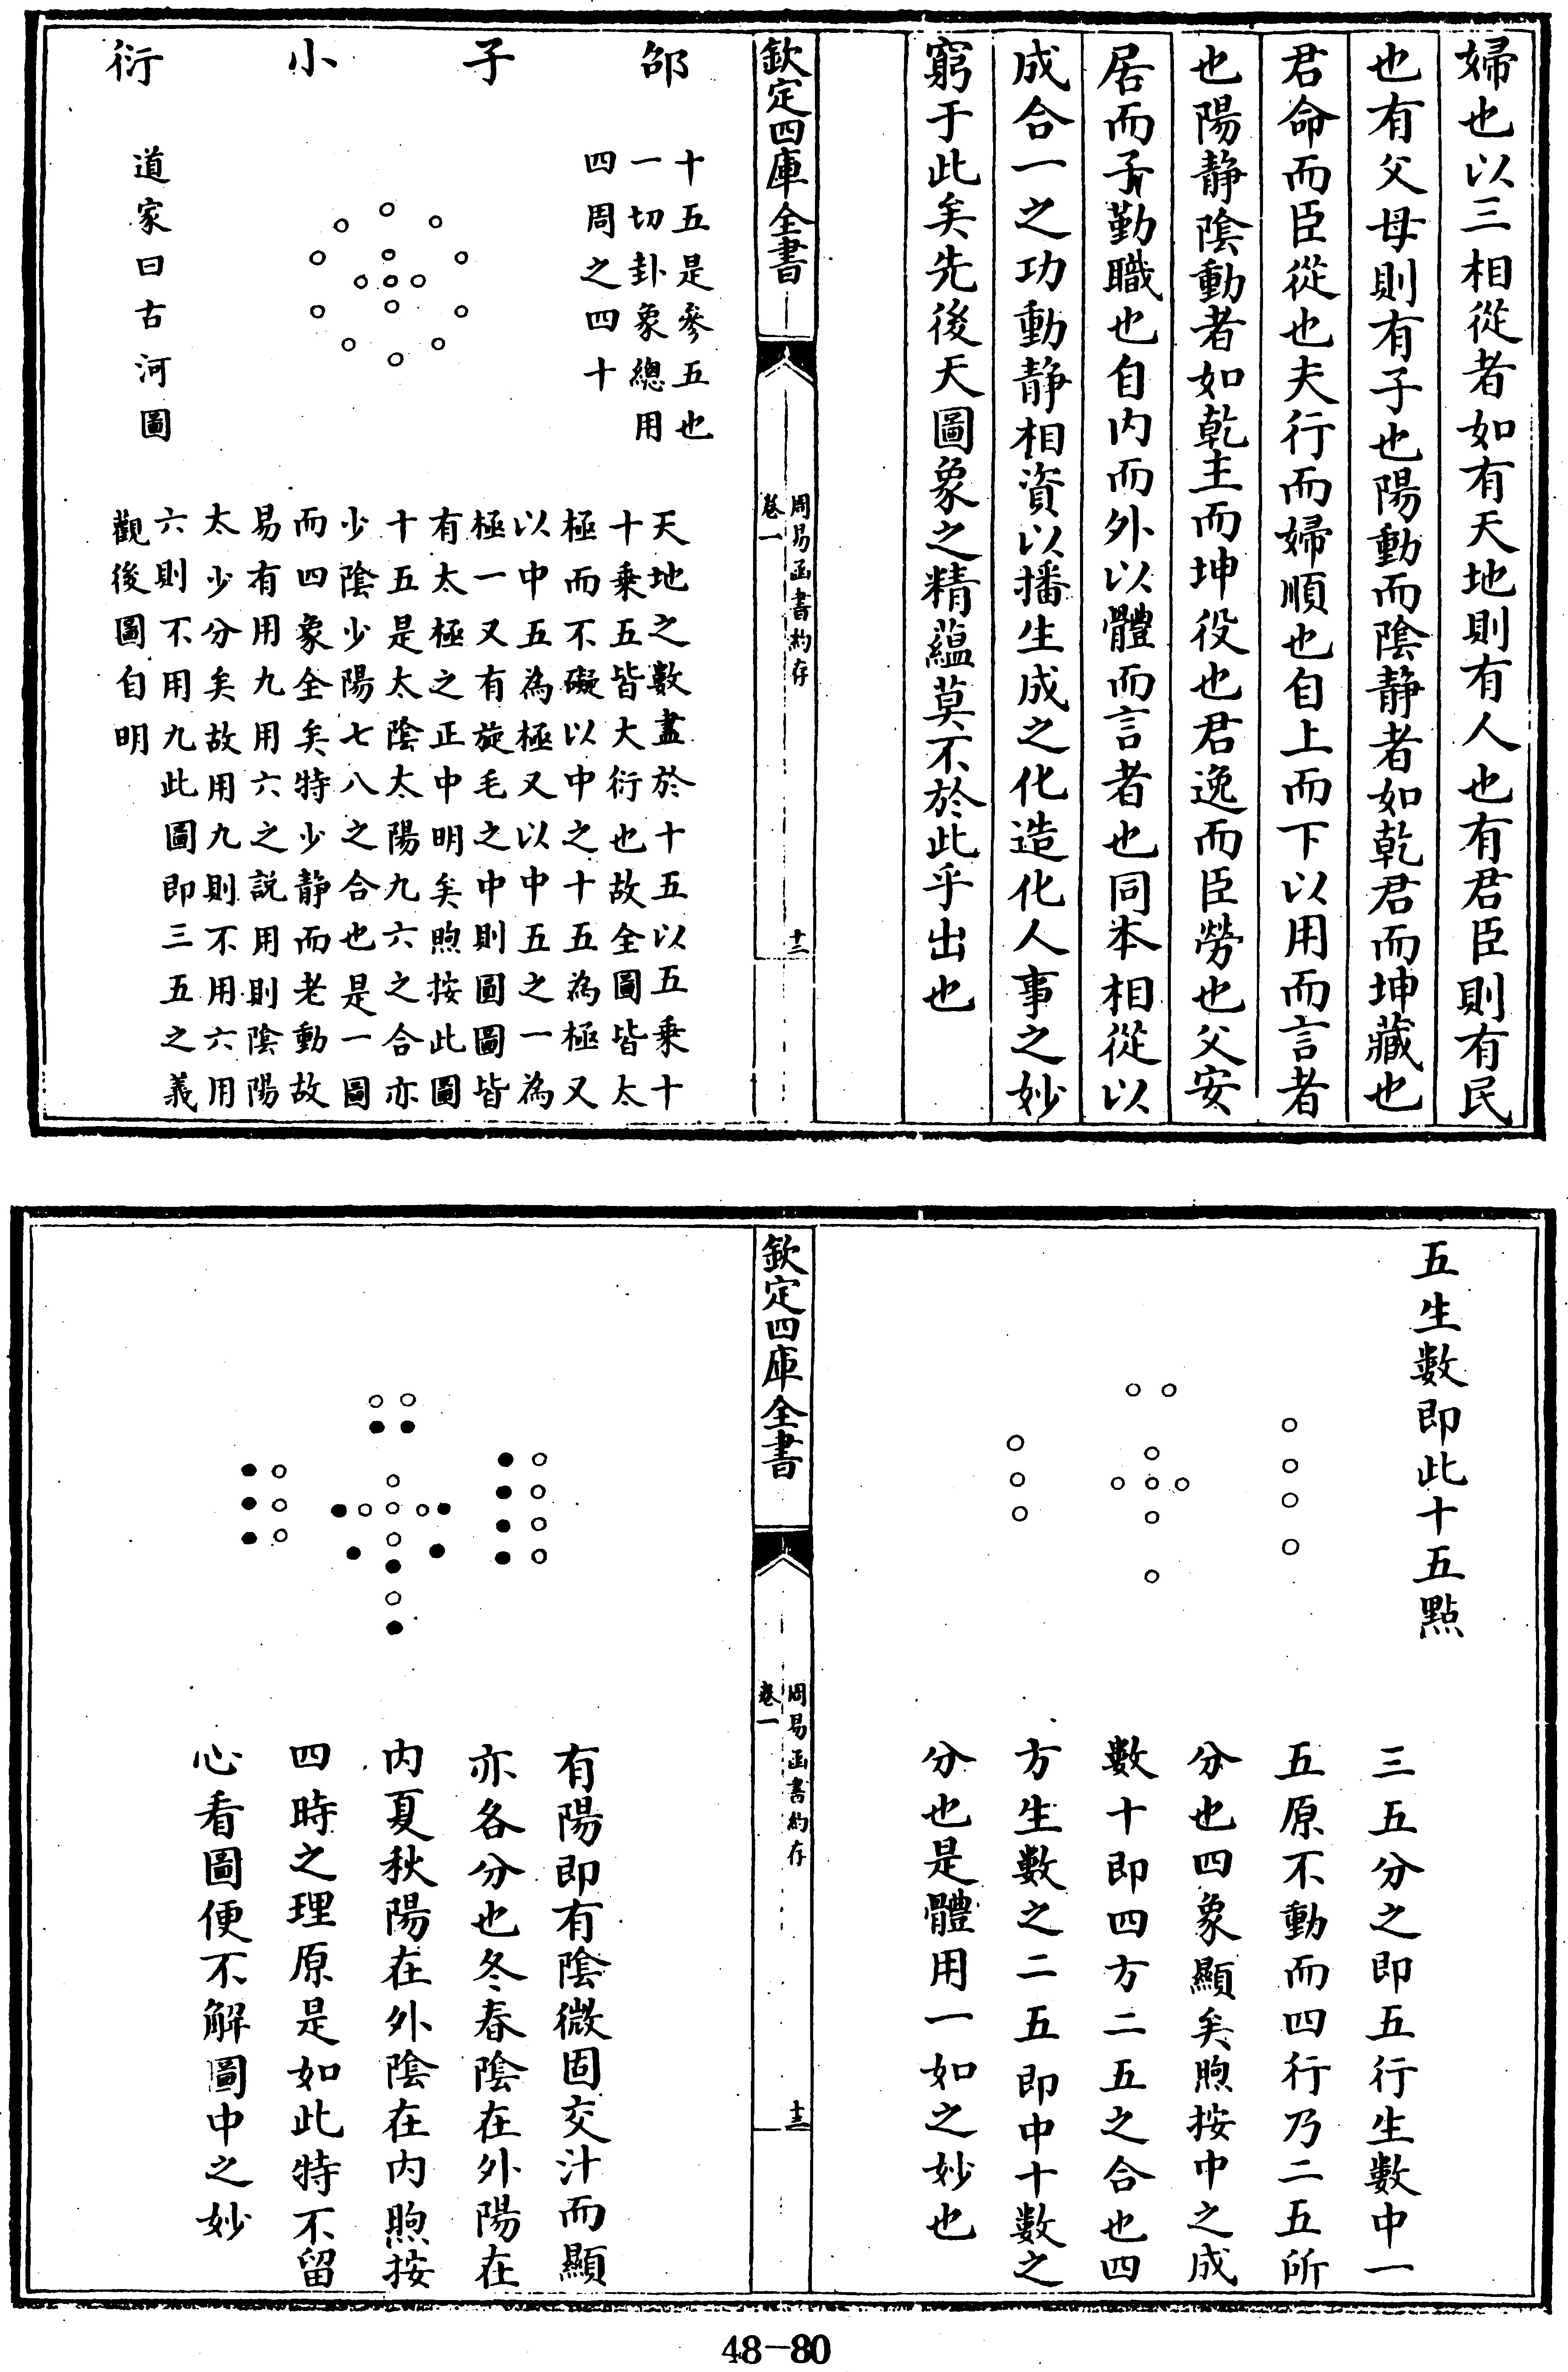 婦也以三相從者如有天地則有人也有君臣則有民
也有父母則有子也陽動而陰静者如乾君而坤藏也
君命而臣從也夫行而婦順也自上而下以用而言者
也陽静陰動者如乾主而坤役也君逸而臣勞也父安
居而子勤職也自内而外以體而言者也同本相從以
成合一之功動静相資以播生成之化造化人事之妙
窮于此矣先後天圖象之精蘊莫不於此乎出也
欽定四庫全書
周易函書約存
卷一
十二
邵子小衍
十五是參五也
一切卦象總用
四周之四十
道家曰古河圖
天地之數盡於十五以五乘十
十乘五皆大衍也故全圖皆太
極而不礙以中之十五為極又
以中五為極又以中五之一為
極一又有旋毛之中則圖圖皆
有太極之正中明矣煦按此圖
十五是太陰太陽九六之合亦
少陰少陽七八之合也是一圖
而四象全矣特少静而老動故
易有用九用六之説用則陰陽
太少分矣故用九則不用六用
六則不用九此圖即三五之義
觀後圖自明
五生數即此十五點
三五分之即五行生數中一
五原不動而四行乃二五所
分也四象顯矣煦按中之成
數十即四方二五之合也四
方生數之二五即中十數之
分也是體用一如之妙也
欽定四庫全書
周易函書約存
卷一
十三
有陽即有陰微固交汁而顯
亦各分也冬春陰在外陽在
内夏秋陽在外陰在内煦按
四時之理原是如此特不留
心看圖便不解圖中之妙
48-80